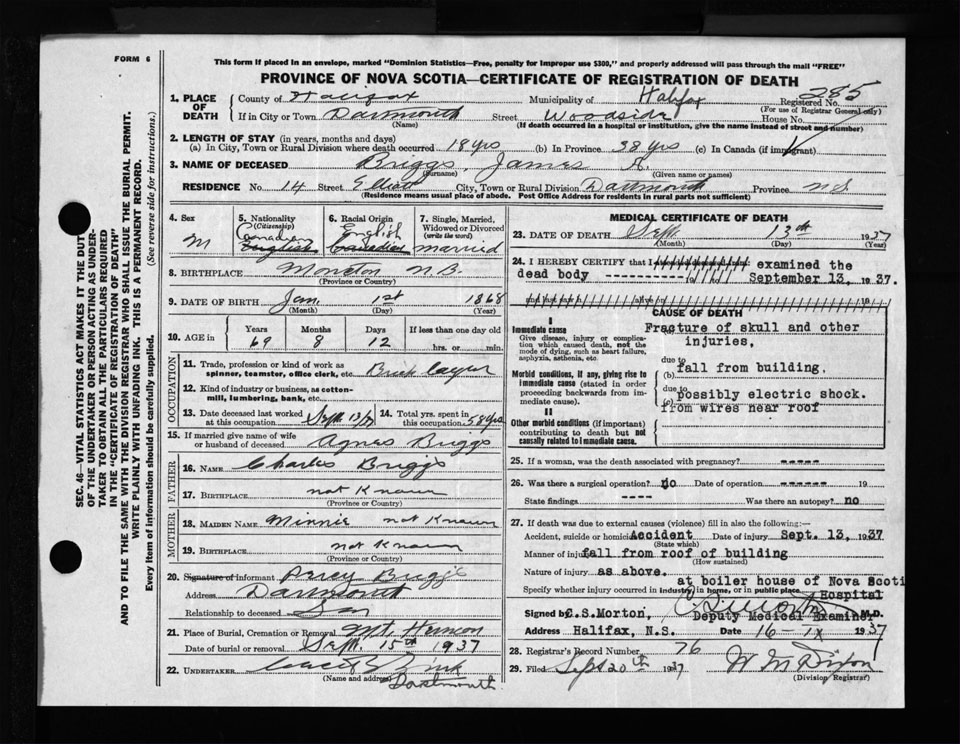 FORM 6
This form if placed in an envelope, marked "Dominion Statistics—Free, penalty for improper use $300," and properly addressed will pass through the mail "FREE"
PROVINCE OF NOVA SCOTIA—CERTIFICATE OF REGISTRATION OF DEATH
285
1. PLACE OF DEATH County of Halifax Municipality of Halifax Registered No.
(For use of Registrar General only)
If in City or Town Dartmouth Street Woodside House No.
(Name) (If death occurred in a hospital or institution, give the name instead of street and number)
2. LENGTH OF STAY (in years, months and days)
(a) In City, Town or Rural Division where death occurred 18 yrs (b) In Province 38 yrs (c) In Canada (if immigrant)
3. NAME OF DECEASED Briggs, James A.
(Surname) (Given name or names)
RESIDENCE No. 14 Street Elliott City, Town or Rural Division Dartmouth Province N.S
(Residence means usual place of abode. Post Office Address for residents in rural parts not sufficient)
4. Sex M
5. Nationality (Citizenship) Canadian English
6. Racial Origin English Canadian
7. Single, Married, Widowed or Divorced (write the word) married
8. BIRTHPLACE Moncton N.B.
(Province or Country)
9. DATE OF BIRTH Jan. 1st 1868
(Month) (Day) (Year)
10. AGE in Years Months Days If less than one day old
69 8 12 hrs. or min.
OCCUPATION
11. Trade, profession or kind of work as spinner, teamster, office clerk, etc. Brick layer
12. Kind of industry or business, as cotton-mill, lumbering, bank, etc.
13. Date deceased last worked at this occupation Sept 13/37
14. Total yrs. spent in this occupation 58 yrs
15. If married give name of wife or husband of deceased Agnes Briggs
FATHER
16. NAME Charles Briggs
17. BIRTHPLACE not Known
(Province or Country)
MOTHER
18. MAIDEN NAME Minnie not Known
19. BIRTHPLACE not Known
(Province or Country)
20. Signature of informant Percy Briggs
Address Dartmouth
Relationship to deceased Son
21. Place of Burial, Cremation or Removal Mt. Hermon
Date of burial or removal Sept. 15th 1937
22. UNDERTAKER
(Name and address) Dartmouth
MEDICAL CERTIFICATE OF DEATH
23. DATE OF DEATH Sept. 13th 1937
(Month) (Day) (Year)
24. I HEREBY CERTIFY that I examined the
dead body September 13, 1937.
CAUSE OF DEATH
I
Immediate cause
Give disease, injury or complication which caused death, not the mode of dying, such as heart failure, asphyxia, asthenia, etc.
Fracture of skull and other
injuries,
Morbid conditions, if any, giving rise to immediate cause (stated in order proceeding backwards from immediate cause).
due to
(b) fall from building,
due to
(c) possibly electric shock.
from wires near roof
II
Other morbid conditions (if important) contributing to death but not causally related to immediate cause.
25. If a woman, was the death associated with pregnancy? -----
26. Was there a surgical operation? no Date of operation ------
State findings ---- Was there an autopsy? no
27. If death was due to external causes (violence) fill in also the following:—
Accident, suicide or homicide Accident Date of injury Sept. 13, 1937
(State which)
Manner of injury fall from roof of building
(How sustained)
Nature of injury as above.
at boiler house of Nova Scoti
Specify whether injury occurred in industry, in home, or in public place.
Hospital
Signed by C.S.Morton, Deputy Medical Examiner M.D.
Address Halifax, N.S. Date 16-IX 1937
28. Registrar's Record Number 76
29. Filed Sept 20th 1937 W M Dixon
(Division Registrar)
SEC. 46—VITAL STATISTICS ACT MAKES IT THE DUTY
OF THE UNDERTAKER OR PERSON ACTING AS UNDER-
TAKER TO OBTAIN ALL THE PARTICULARS REQUIRED
IN THE "CERTIFICATE OF REGISTRATION OF DEATH"
AND TO FILE THE SAME WITH THE DIVISION REGISTRAR WHO SHALL ISSUE THE BURIAL PERMIT.
WRITE PLAINLY WITH UNFADING INK. THIS IS A PERMANENT RECORD.
Every item of information should be carefully supplied. (See reverse side for instructions.)